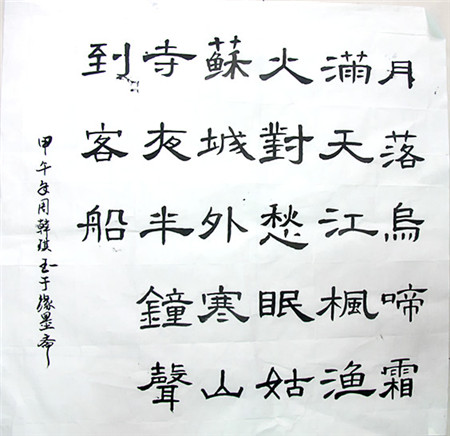 月落烏啼霜
滿天江楓漁
火對愁眠姑
蘇城外寒山
寺夜半鐘聲
到客船
甲午周韓琪于緣墨斋